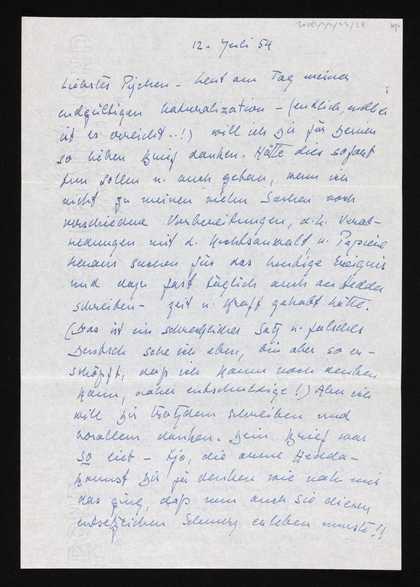 12. Juli 54
Liebstes Pijchen – heut am Tag meiner
endgültigen Naturalization – (endlich, endlich
ist es erreicht..!) will ich Dir für Deinen
so lieben Brief danken. Hätte dies sofort
tun sollen u. auch getan, wenn ich
nicht zu meinen vielen Sachen noch
verschiedene Vorbereitungen, d.h. Verab-
redungen mit d. Rechtsanwalt, u. Papiere
heraus suchen für das heutige Ereignis
und dazu fast täglich auch an Hedda
schreiben – Zeit u. Kraft gehabt hätte.
(Das ist ein schrecklicher Satz u. falsches
Deutsch sehe ich eben, bin aber so er-
schöpft, daß ich kaum noch denken
kann, daher entschuldige!) Aber ich
will Dir trotzdem schreiben und
vorallem danken. Dein Brief war
so lieb – Tja, die arme Hedda –
kannst Dir ja denken wie nah mir
das ging, daß nun auch sie diesen
entsetzlichen Schmerz erleben musste!!